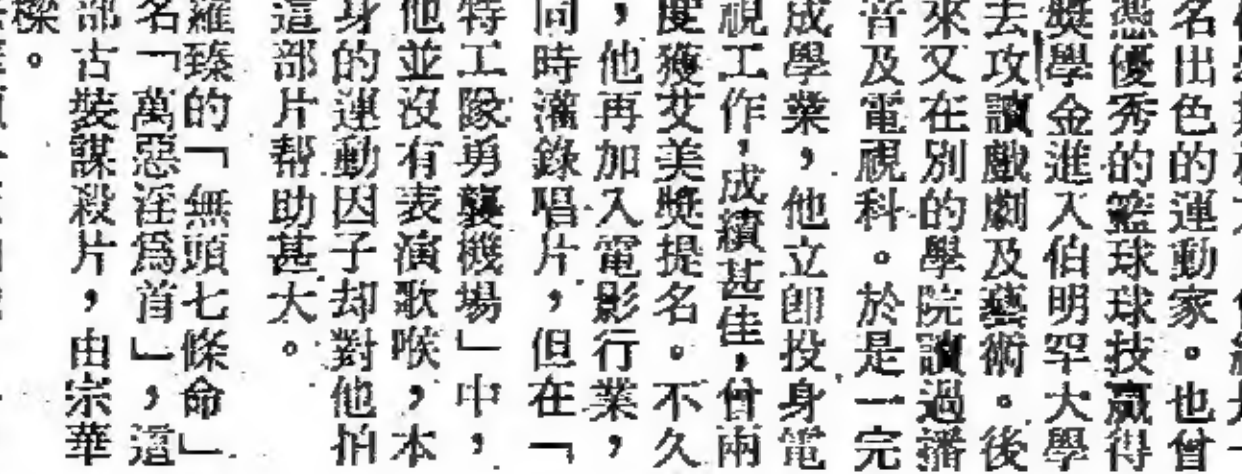 名出色的運動家。也曾
憑優秀的籃球球技贏得
獎學金進入伯明罕大學
去攻讀戲劇及藝術。後
來又在別的學院讀過播
音及電視科。於是一完
成學業，他立即投身電
視工作，成績甚佳，曾兩
度獲艾美獎提名。不久
，他再加入電影行業，
同時灌錄唱片，但在「
特工隊勇襲機場」中，
他並沒有表演歌喉，本
身的運動因子却對他拍
這部片幫助甚大。
羅臻的「無頭七條命」
名「萬惡淫爲首」，這
部古裝謀殺片，由宗華
樑。